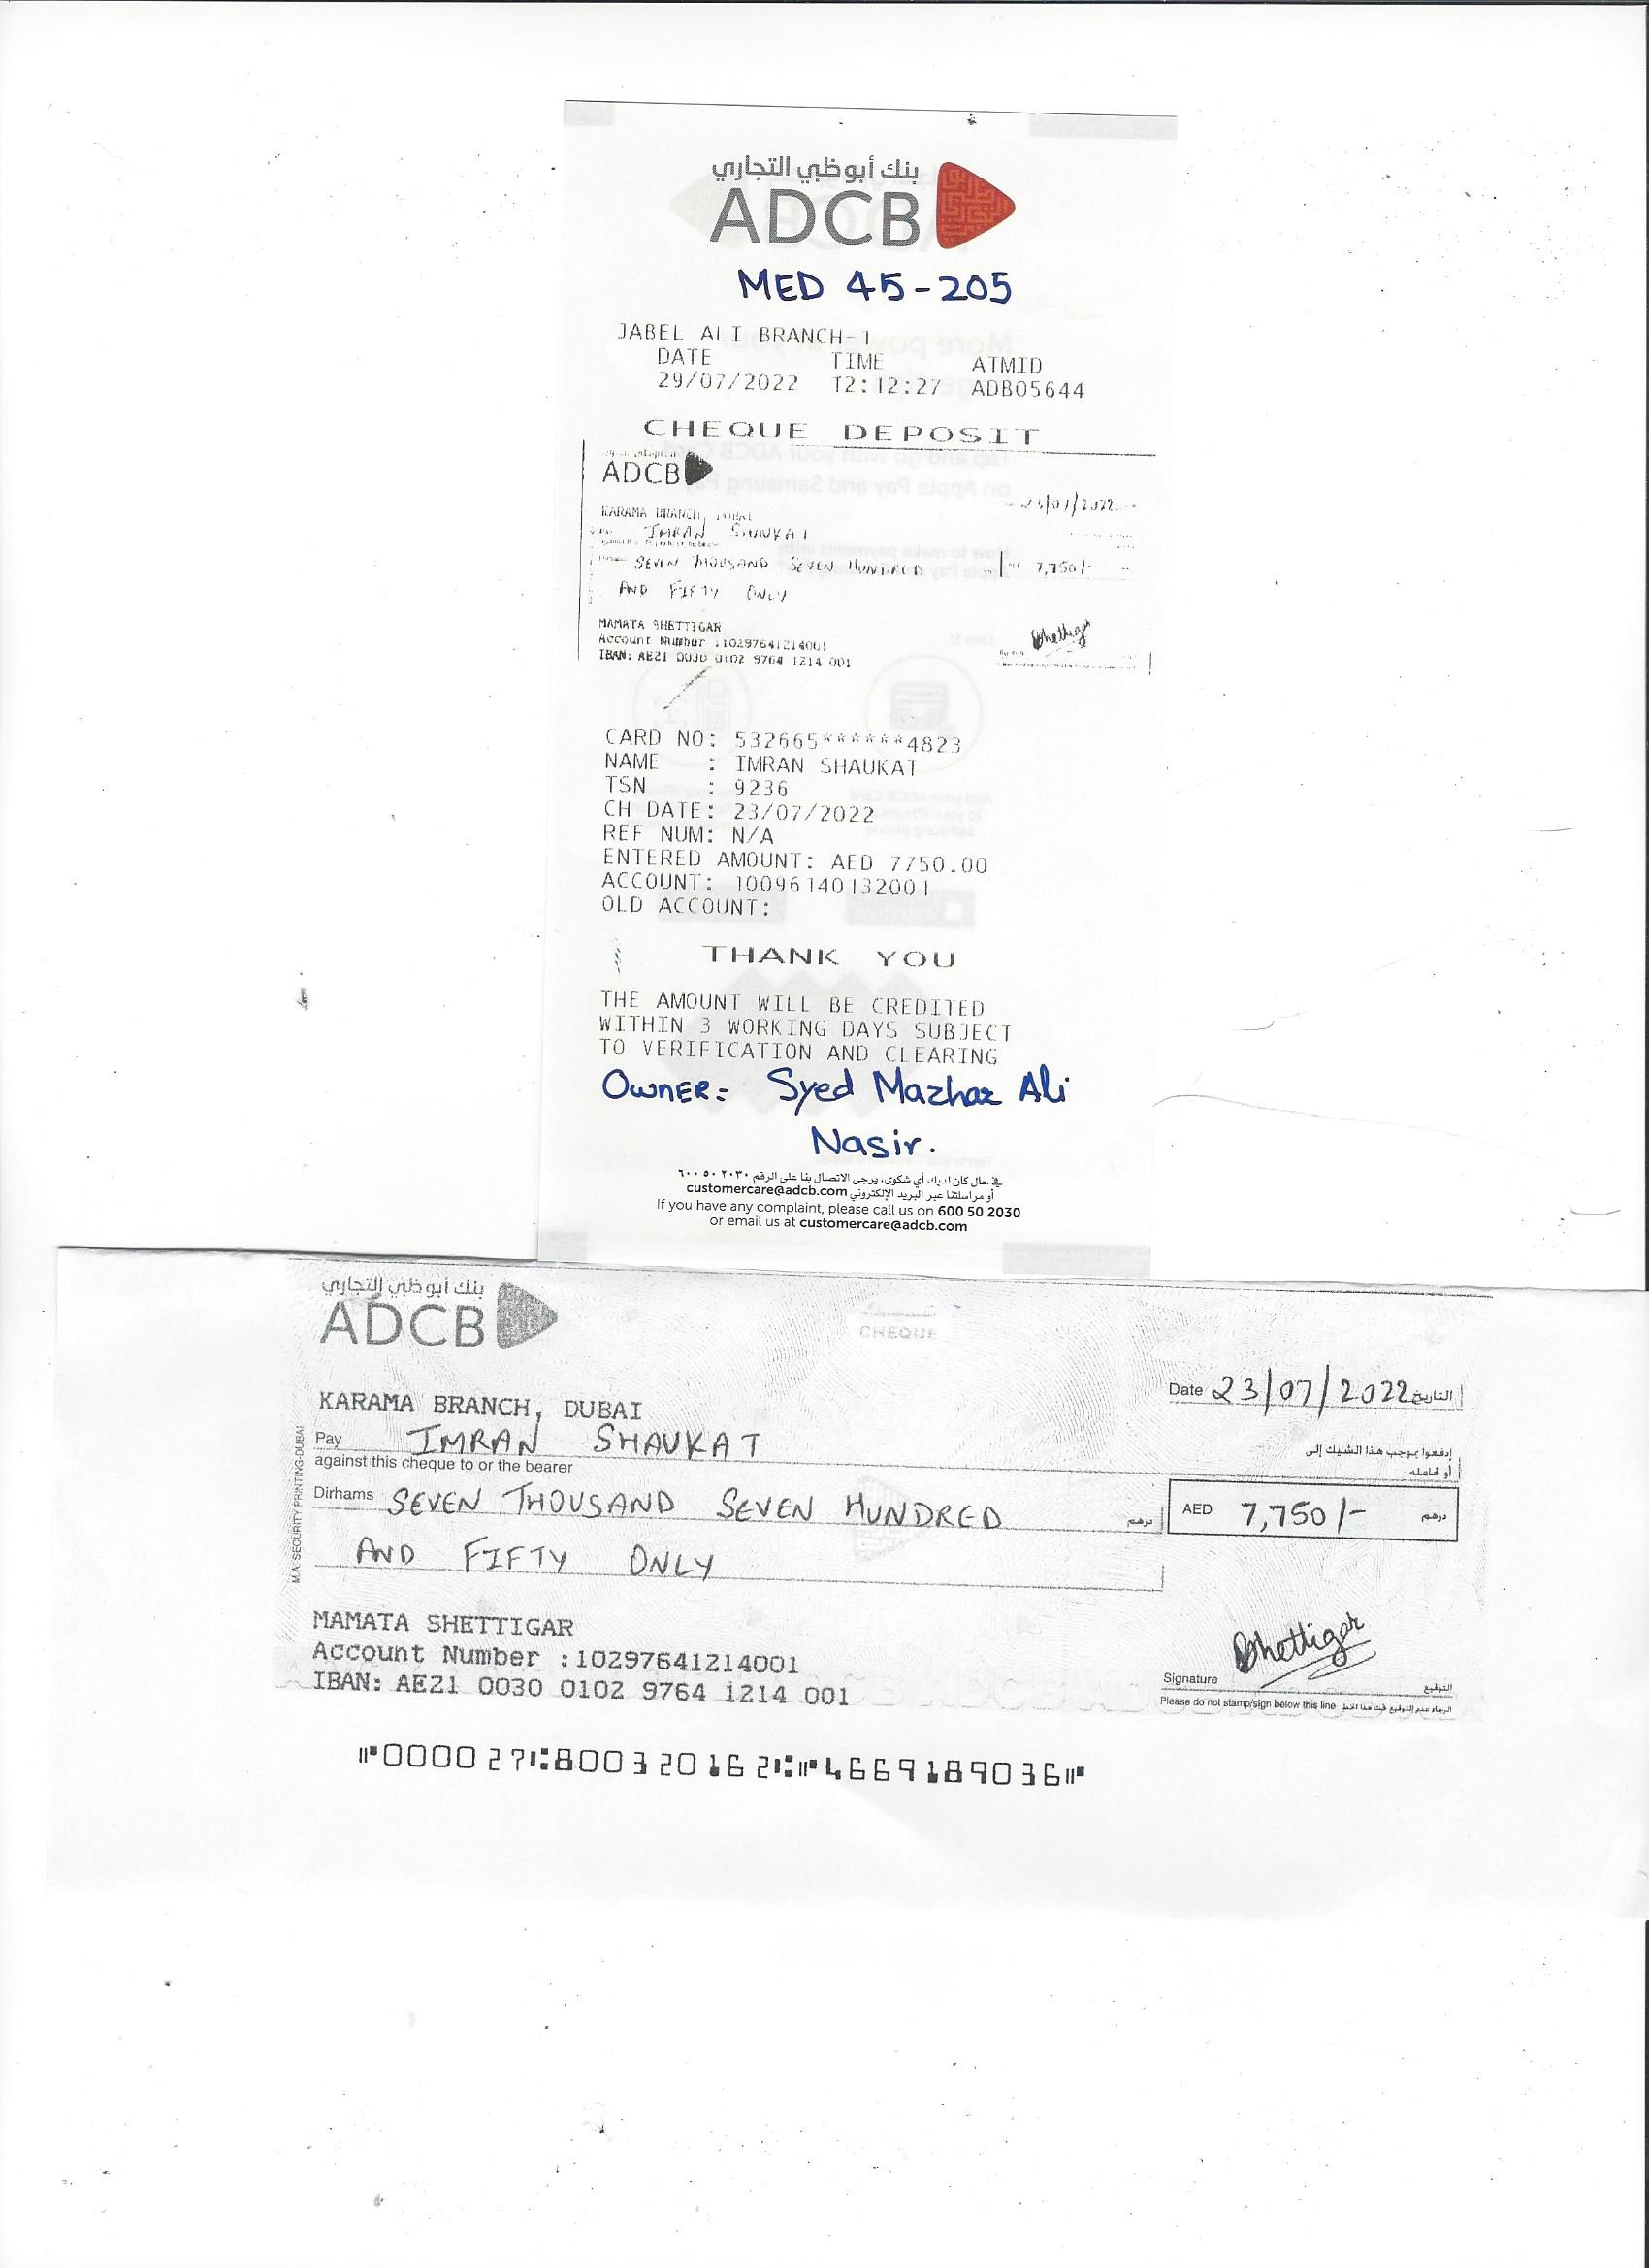 بنك أبوظبي التجاري
ADCB
MED 45-205
JABEL ALI BRANCH-1
DATE TIME ATMID
29/07/2022 12:12:27 ADB05644
CHEQUE DEPOSIT
ADCB
KARAMA BRANCH, DUBAI
23/07/2022
Pay IMRAN SHAUKAT
SEVEN THOUSAND SEVEN HUNDRED 7,750/-
AND FIFTY ONLY
MAMATA SHETTIGAR
Account Number :10297641214001
IBAN: AE21 0030 0102 9764 1214 001
Shettigar
CARD NO: 532665******4823
NAME : IMRAN SHAUKAT
TSN : 9236
CH DATE: 23/07/2022
REF NUM: N/A
ENTERED AMOUNT: AED 7750.00
ACCOUNT: 10096140132001
OLD ACCOUNT:
THANK YOU
THE AMOUNT WILL BE CREDITED
WITHIN 3 WORKING DAYS SUBJECT
TO VERIFICATION AND CLEARING
OWNER:- Syed Mazhar Ali
Nasir.
في حال كان لديك أي شكوى، يرجى الاتصال بنا على الرقم ٢٠٣٠ ٥٠ ٦٠٠
أو مراسلتنا عبر البريد الإلكتروني customercare@adcb.com
If you have any complaint, please call us on 600 50 2030
or email us at customercare@adcb.com
بنك أبوظبي التجاري
ADCB
CHEQUE
KARAMA BRANCH, DUBAI
Date 23/07/2022 التاريخ
Pay IMRAN SHAUKAT إدفعوا بموجب هذا الشيك إلى
against this cheque to or the bearer أو لحامله
Dirhams SEVEN THOUSAND SEVEN HUNDRED درهم AED 7,750/- درهم
AND FIFTY ONLY
M.A. SECURITY PRINTING-DUBAI
MAMATA SHETTIGAR
Account Number :10297641214001
IBAN: AE21 0030 0102 9764 1214 001
Shettigar
Signature التوقيع
Please do not stamp/sign below this line الرجاء عدم التوقيع تحت هذا الخط
⑈000027⑆800320162⑆⑈4669189036⑈